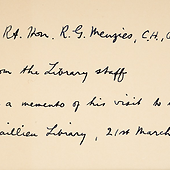 Rt. Hon. R. G. Menzies, C.H.,
the Library staff
a memento of his visit to
Library, 21st March